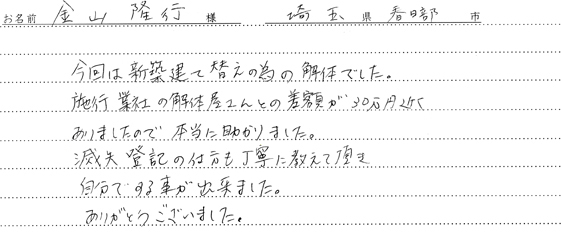 お名前 金山 隆行 様 埼玉 県 春日部 市
今回は新築建て替えの為の解体でした。
施行業社の解体屋さんとの差額が30万円近く
ありましたので本当に助かりました。
滅失登記の仕方も丁寧に教えて頂き
自分でする事が出来ました。
ありがとうございました。